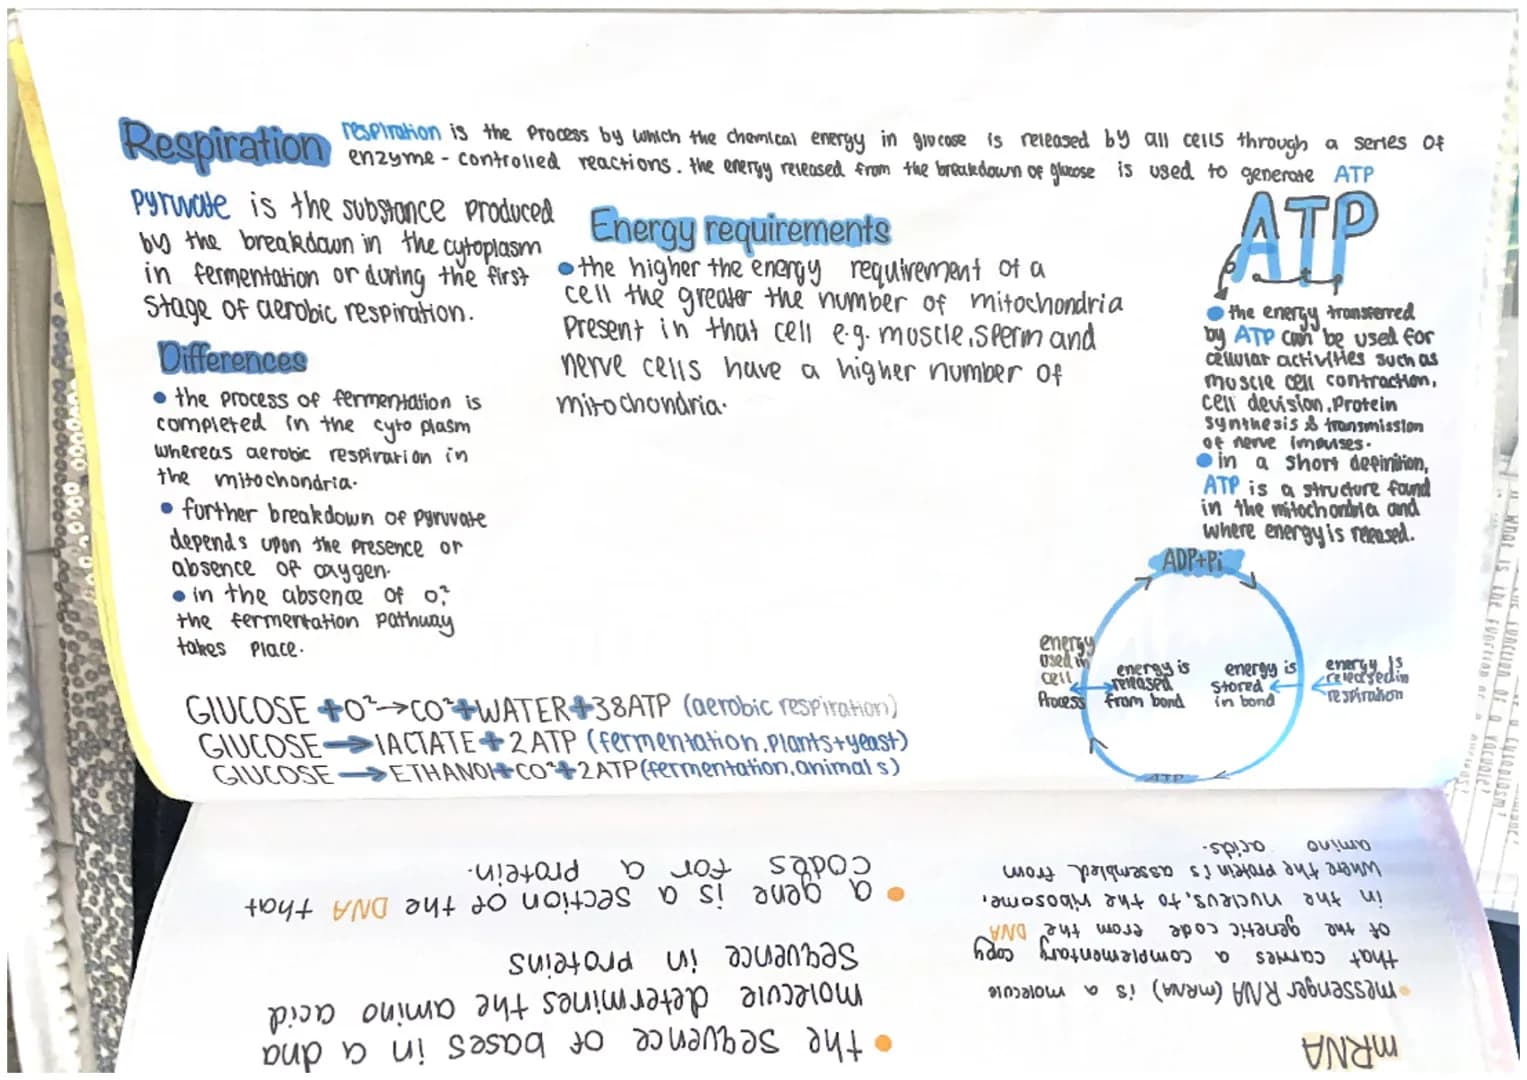 Respiration
respiration is the process by which the chemical energy in glucose is released by all cells through a series of
enzyme-controlled reactions. the energy released from the breakdown of glucose is used to generate ATP
Pyruvate is the substance produced
by the breakdown in the cytoplasm
in fermentation or during the first
stage of aerobic respiration.
Differences
• the process of fermentation is
completed in the cytoplasm
whereas aerobic respiration in
the mitochondria.
• further breakdown of pyruvate
depends upon the presence or
absence of oxygen.
• in the absence of O²
the fermentation pathway
takes place.
Energy requirements
• the higher the energy requirement of a
cell the greater the number of mitochondria
present in that cell e.g. muscle, sperm and
nerve cells have a higher number of
mitochondria.
ATP
• the energy transferred
by ATP can be used for
cellular activities such as
muscle cell contraction,
cell devision, Protein
synthesis & transmission
of nerve impulses.
• in a short definition,
ATP is a structure found
in the mitochondria and
where energy is released.
ADP+Pi
energy
used in
cell
Process
energy is
released
from bond
energy is
stored
in bond
energy is
released in
respiration
ATP
GLUCOSE + O² → CO² + WATER + 38ATP (aerobic respiration)
GLUCOSE → LACTATE + 2ATP (fermentation, plants+yeast)
GLUCOSE → ETHANOL + CO² + 2ATP (fermentation, animals)
mRNA
• messenger RNA (mRNA) is a molecule
that carries a complementary copy
of the genetic code from the DNA
in the nucleus, to the ribosome,
where the protein is assembled from
amino acids.
• the sequence of bases in a dna
molecule determines the amino acid
sequence in proteins
• a gene is a section of the DNA that
codes for a protein.